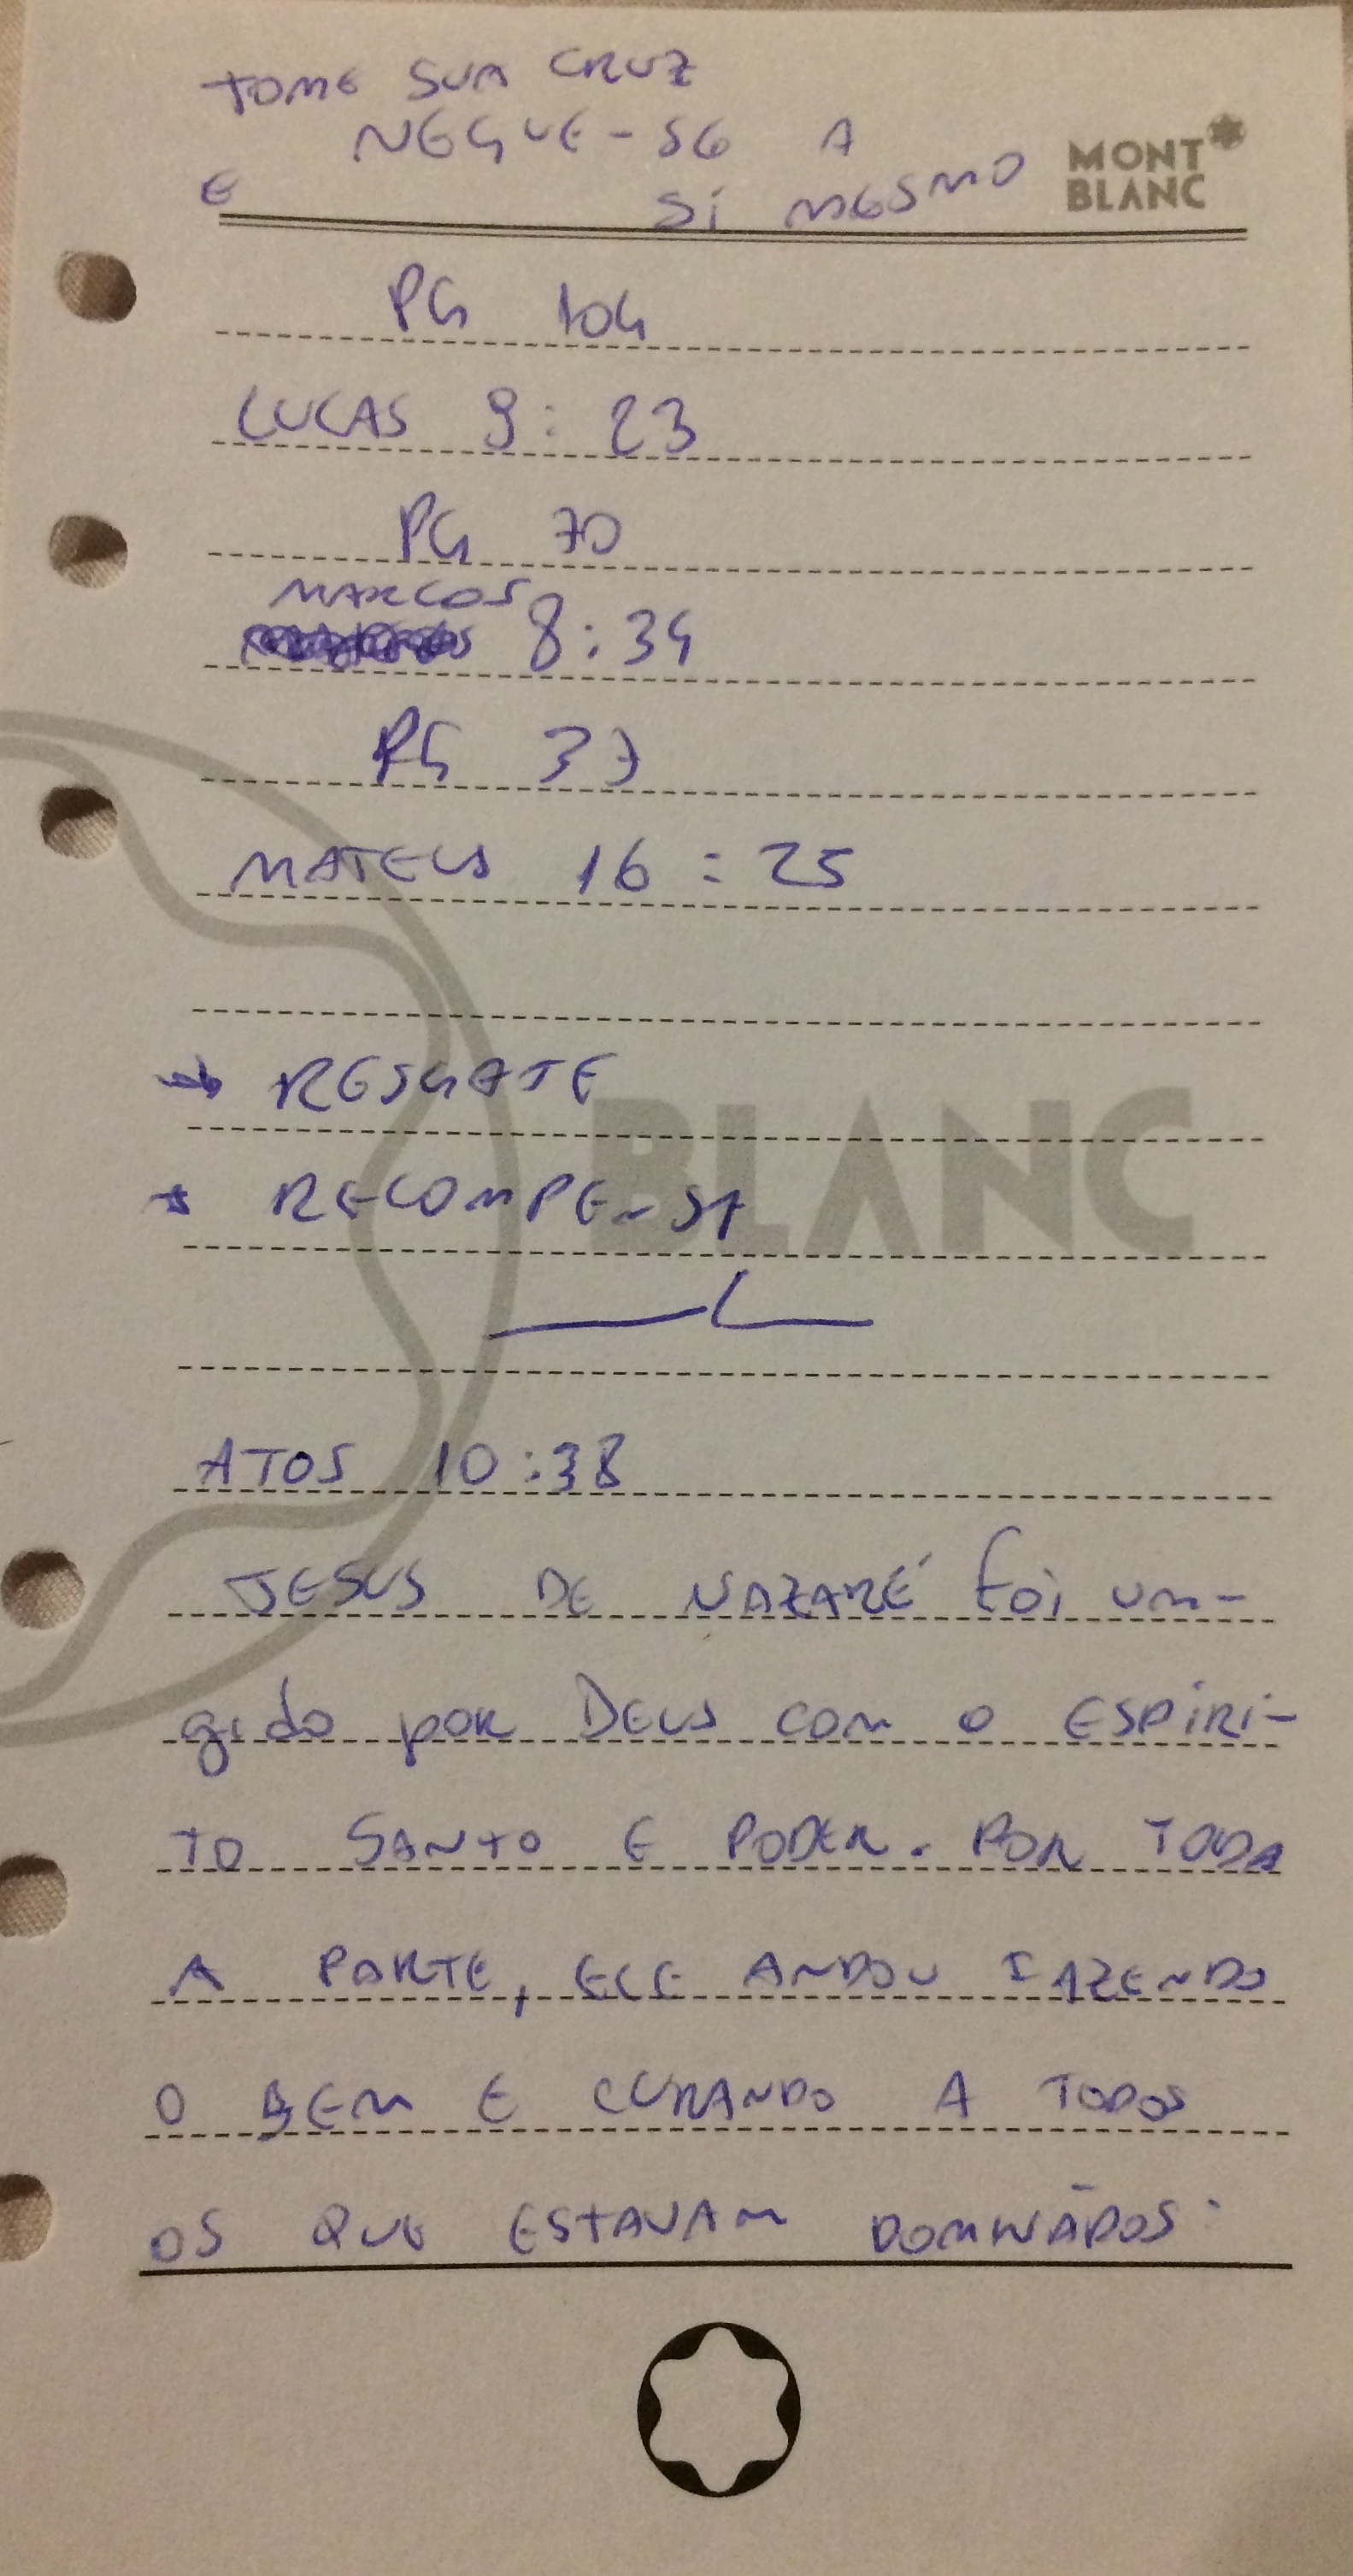 TOME SUA CRUZ
E NEGUE-SE A
SI MESMO
MONT
BLANC
PG 104
LUCAS 9:23
PG 70
MARCOS 8:34
PG 37
MATEUS 16:25
→ RESGATE
BLANC
→ RECOMPENSA
ATOS 10:38
JESUS DE NAZARÉ foi un-
gido por DEUS com o ESPIRI-
TO SANTO E PODER. POR TODA
A PARTE, ELE ANDOU FAZENDO
O BEM E CURANDO A TODOS
OS QUE ESTAVAM DOMINADOS